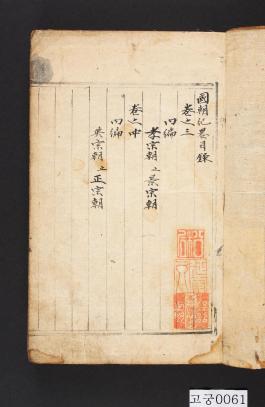 國朝紀畧目錄
卷之三
內編
孝宗朝 上 景宗朝
卷之四
內編
英宗朝 上 正宗朝
고궁0061